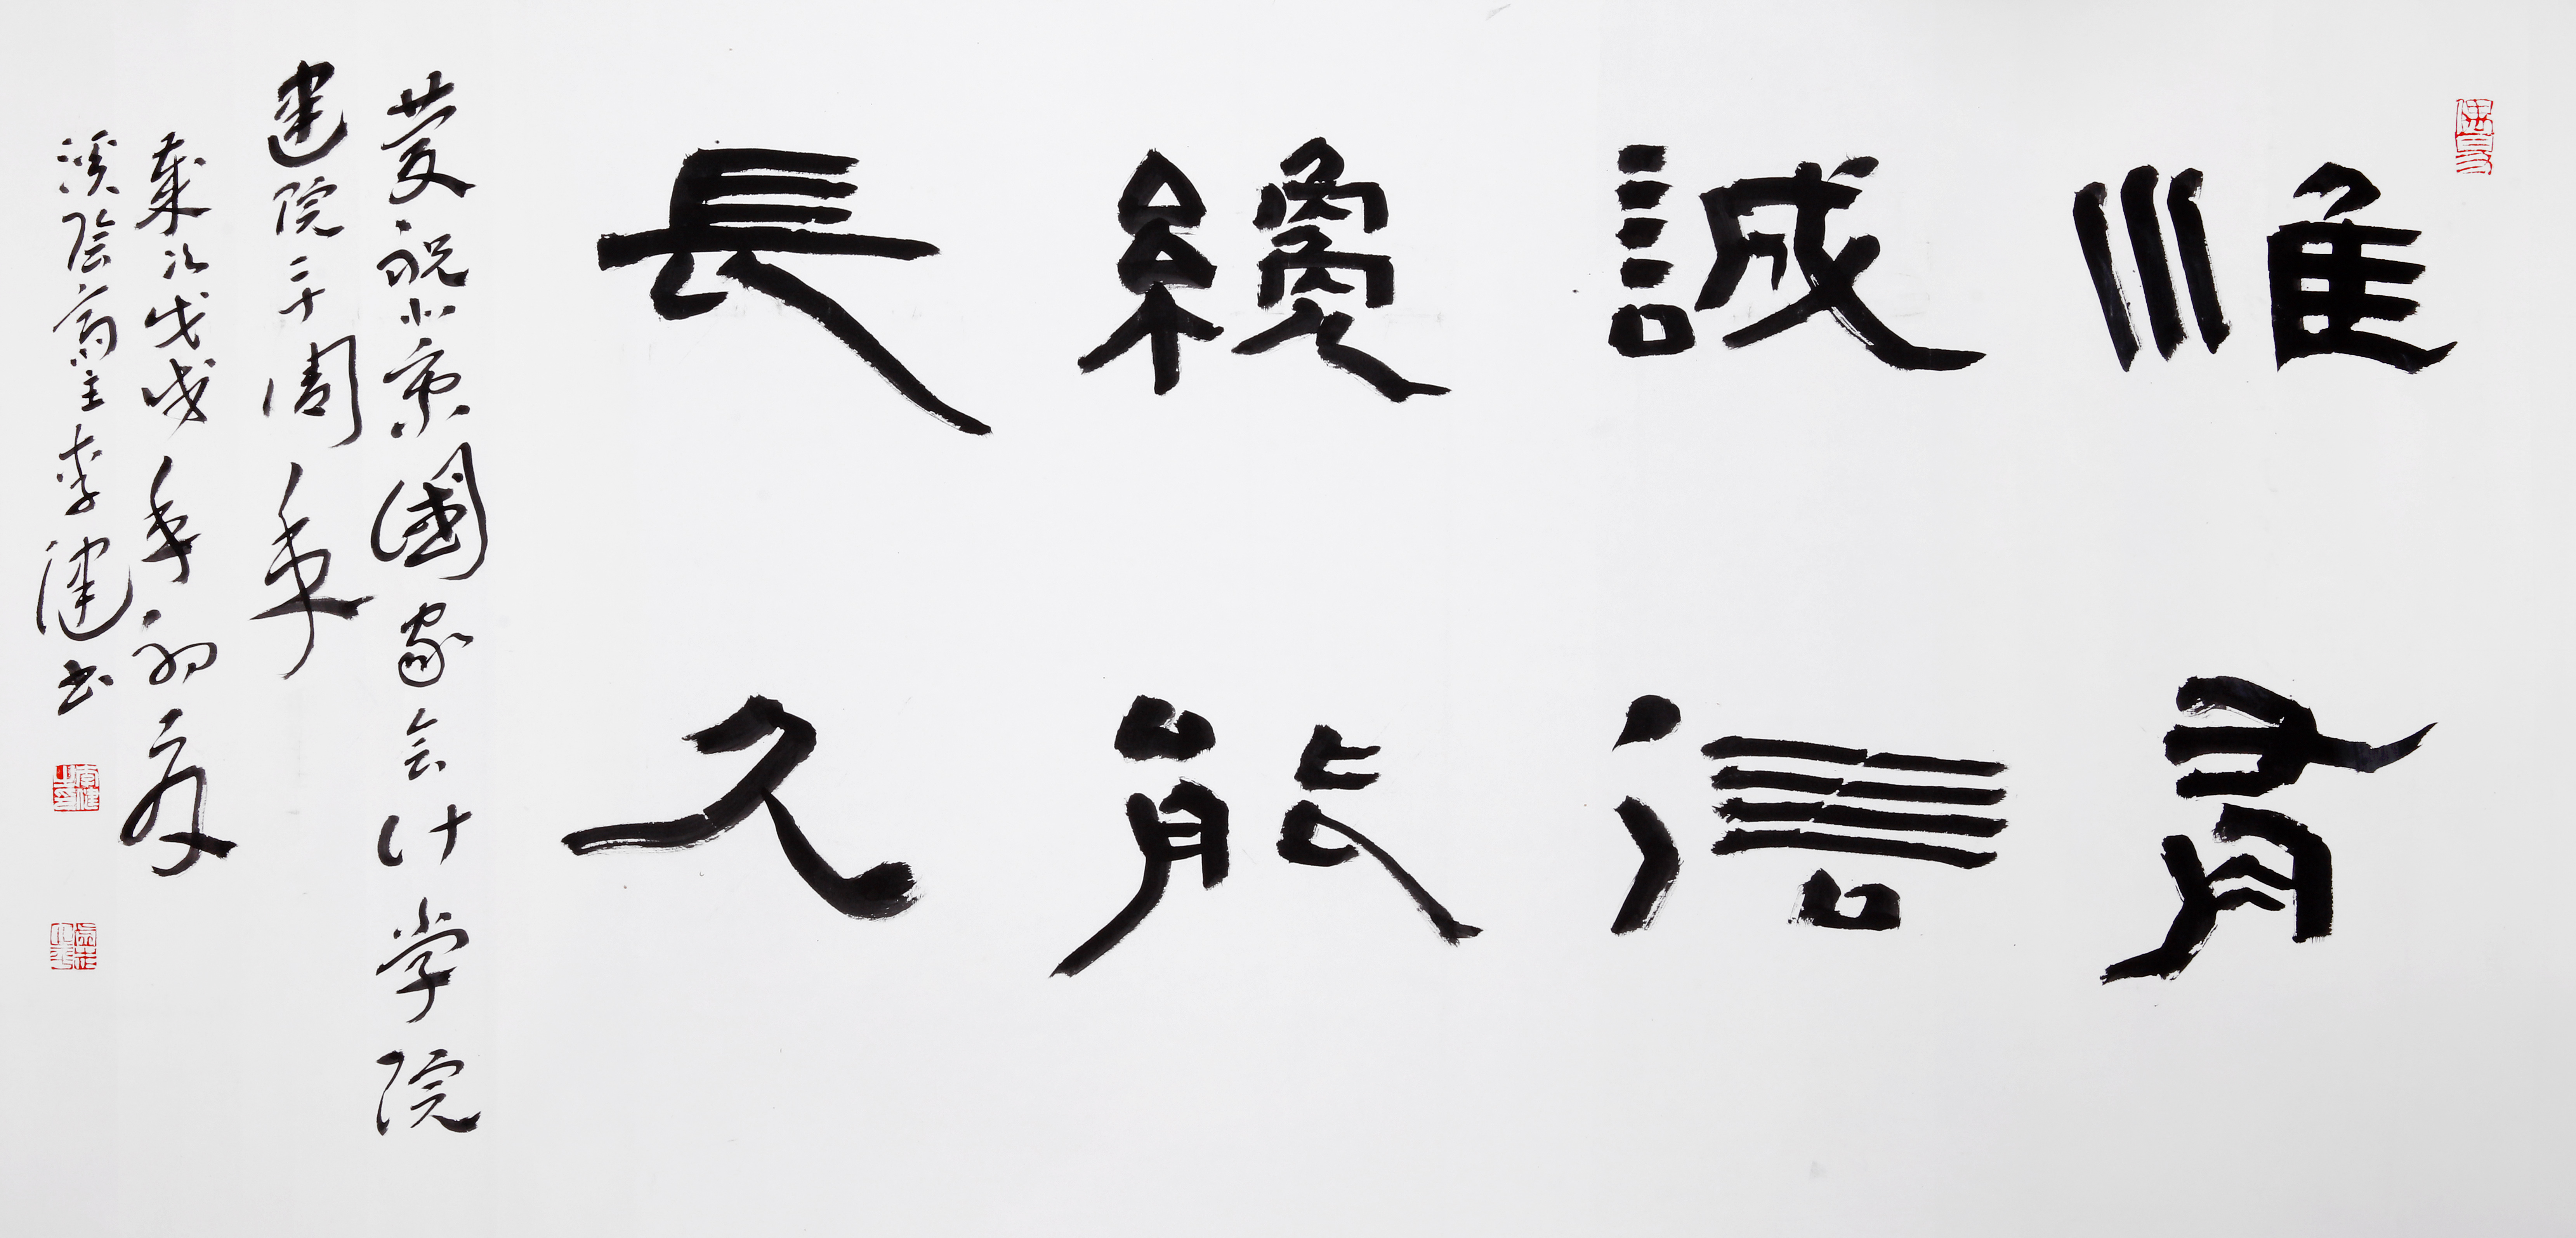 惟有
誠信
纔能
長久
慶祝北京國家会计学院
建院二十周年
歲次戊戌年初夏
溪陰斋主李健书